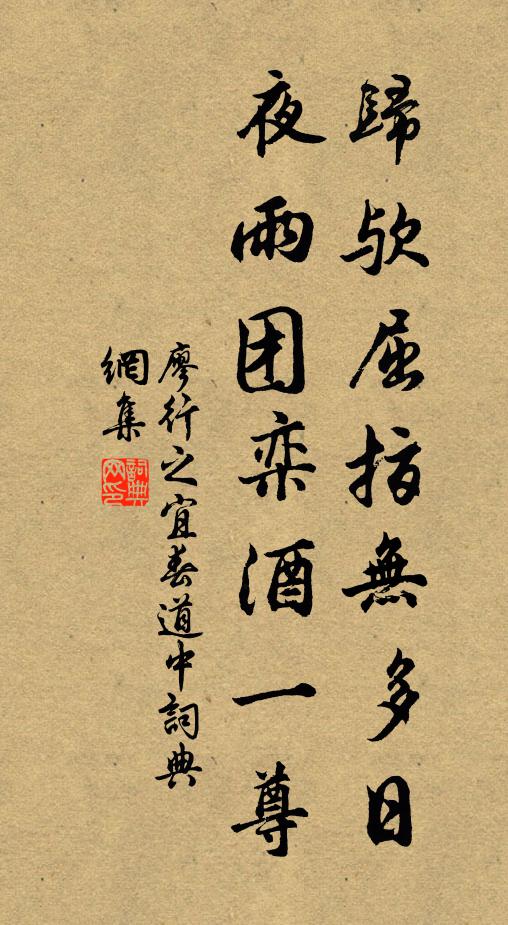 歸欤屈指無多日
夜雨团栾酒一尊
廖行之宜春道中詞典
網集
詞典網印